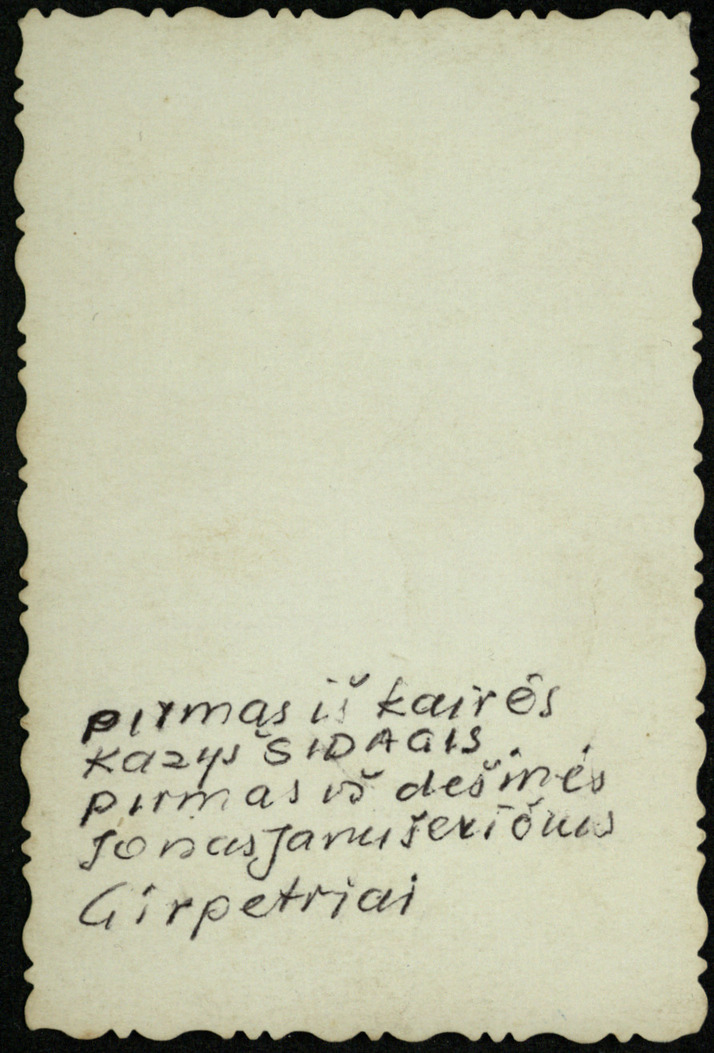 pirmas iš kairės
Kazys ŠIDAGIS
pirmas iš dešinės
Jonas Januševičius
Girpetriai